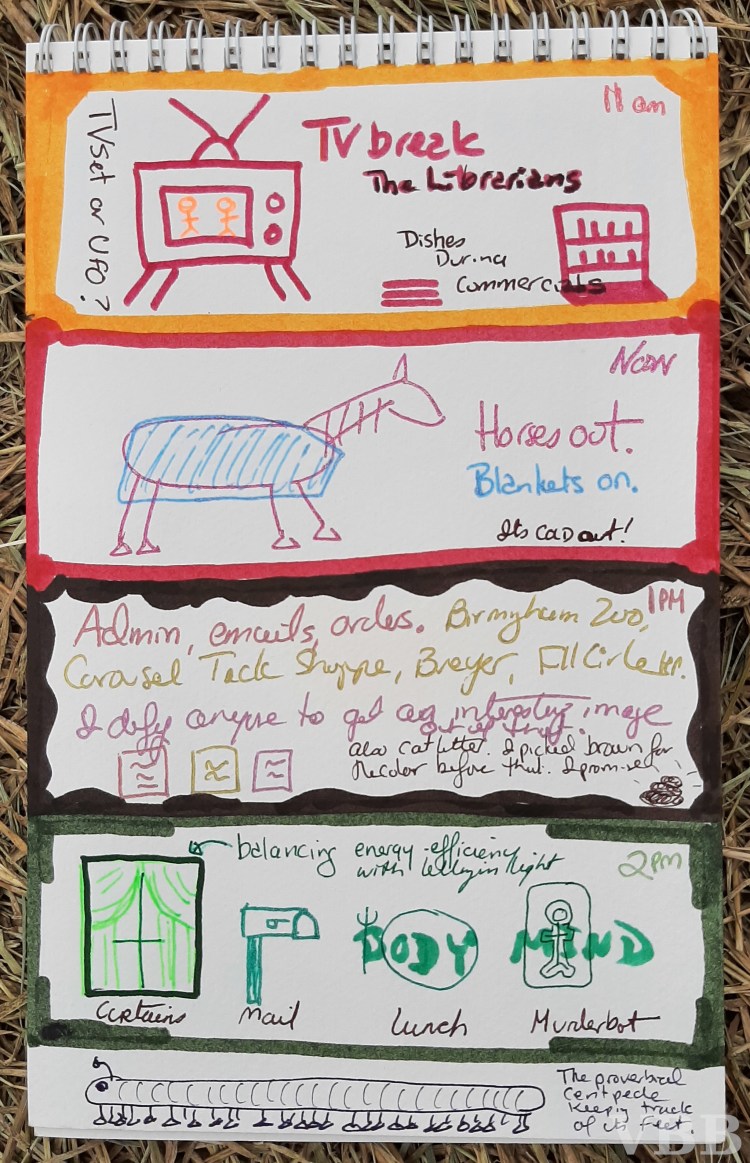 11 am
TV set or UFO?
TV break
The Librarians
Dishes
During
Commercials
Noon
Horses out.
Blankets on.
Its cold out!
1 PM
Admin, emails, orders. Birmingham Zoo,
Carousel Tack Shoppe, Breyer,
I defy anyone to get an interesting image
out of that.
also cat litter. I picked brown for
the color before that. I promise!
2 pm
balancing energy-efficiency
with letting in light
BODY MIND
Curtains Mail Lunch Murderbot
The proverbial
Centipede
Keeping track
of its feet.
VBB